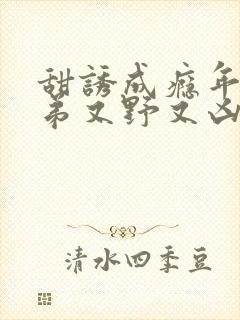 甜誘成癮年
弟又野又凶
清水四季豆